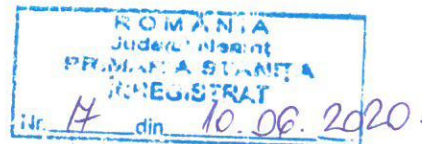 ROMÂNIA
Județul Neamț
PRIMĂRIA STĂNIȚA
ÎNREGISTRAT
Nr. 17 din 10. 06. 2020.